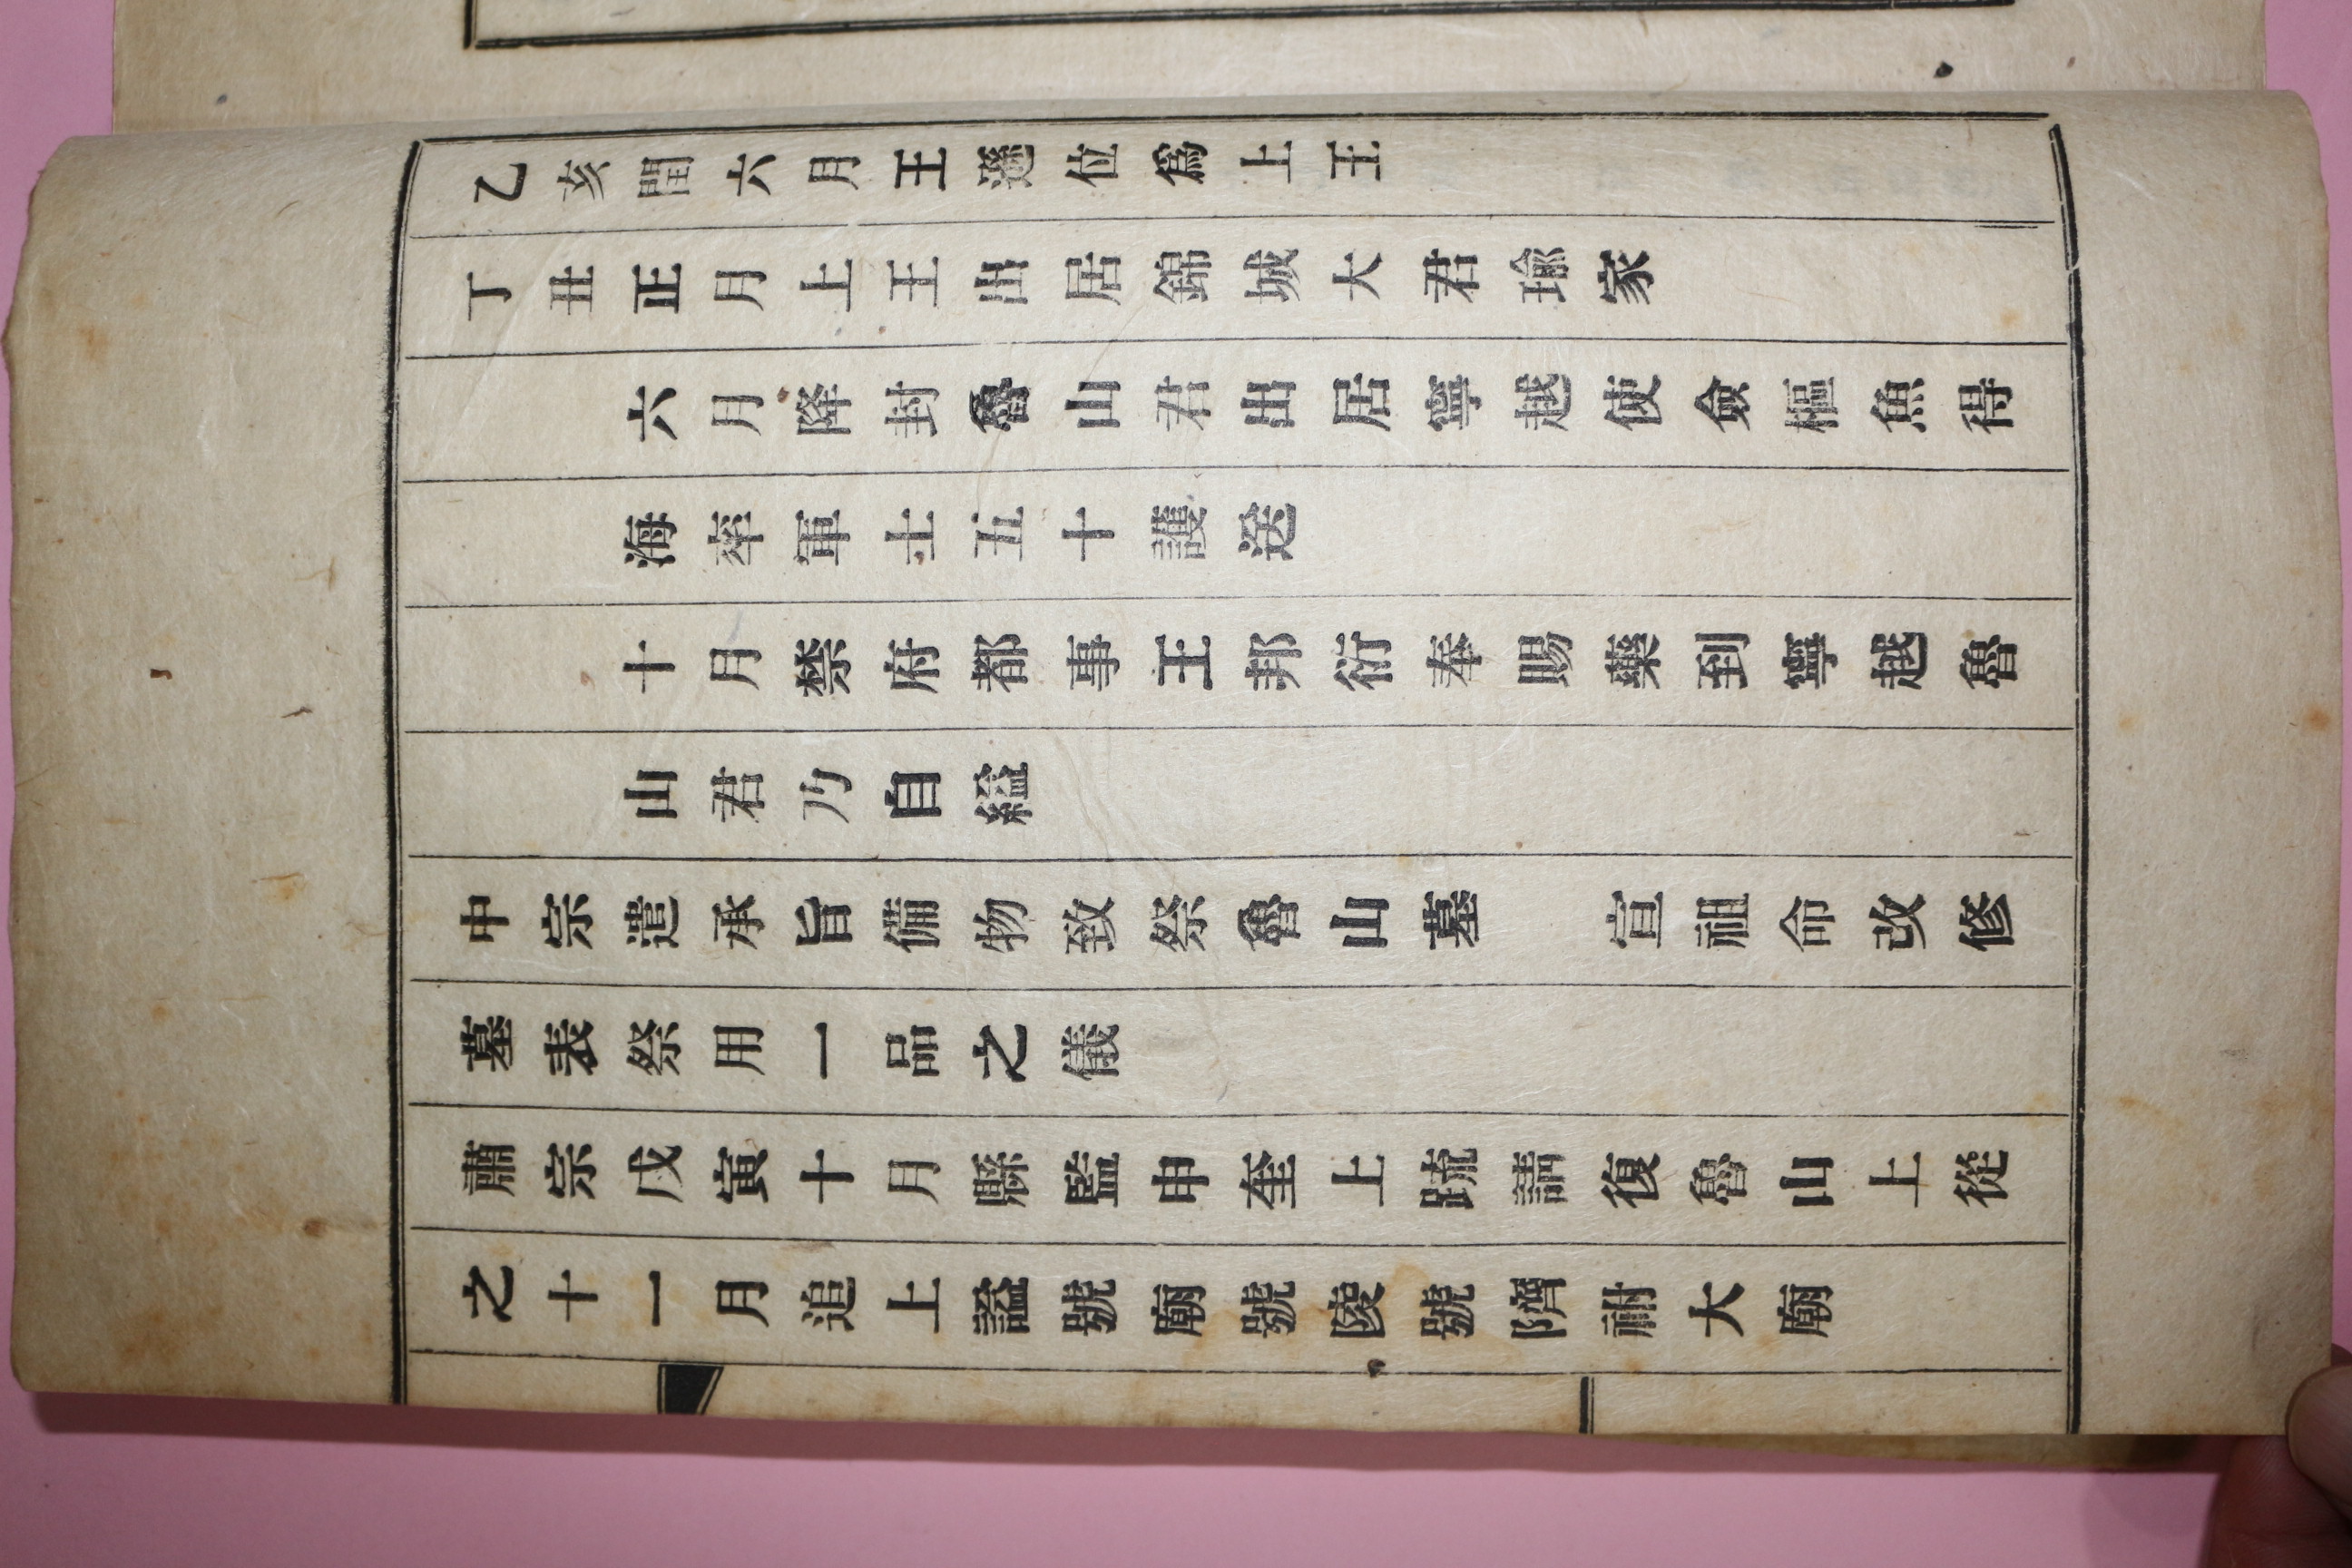 乙亥閏六月王遜位爲上王
丁丑正月上王出居錦城大君瑜家
六月降封魯山君出居寧越使僉樞魚得
海率軍士五十護送
十月禁府都事王邦衍奉賜藥到寧越魯
山君乃自縊
中宗遣承旨備物致祭魯山墓　宣祖命改修
墓表祭用一品之儀
肅宗戊寅十月縣監申奎上䟽請復魯山上從
之十一月追上謚號廟號陵號隮祔大廟